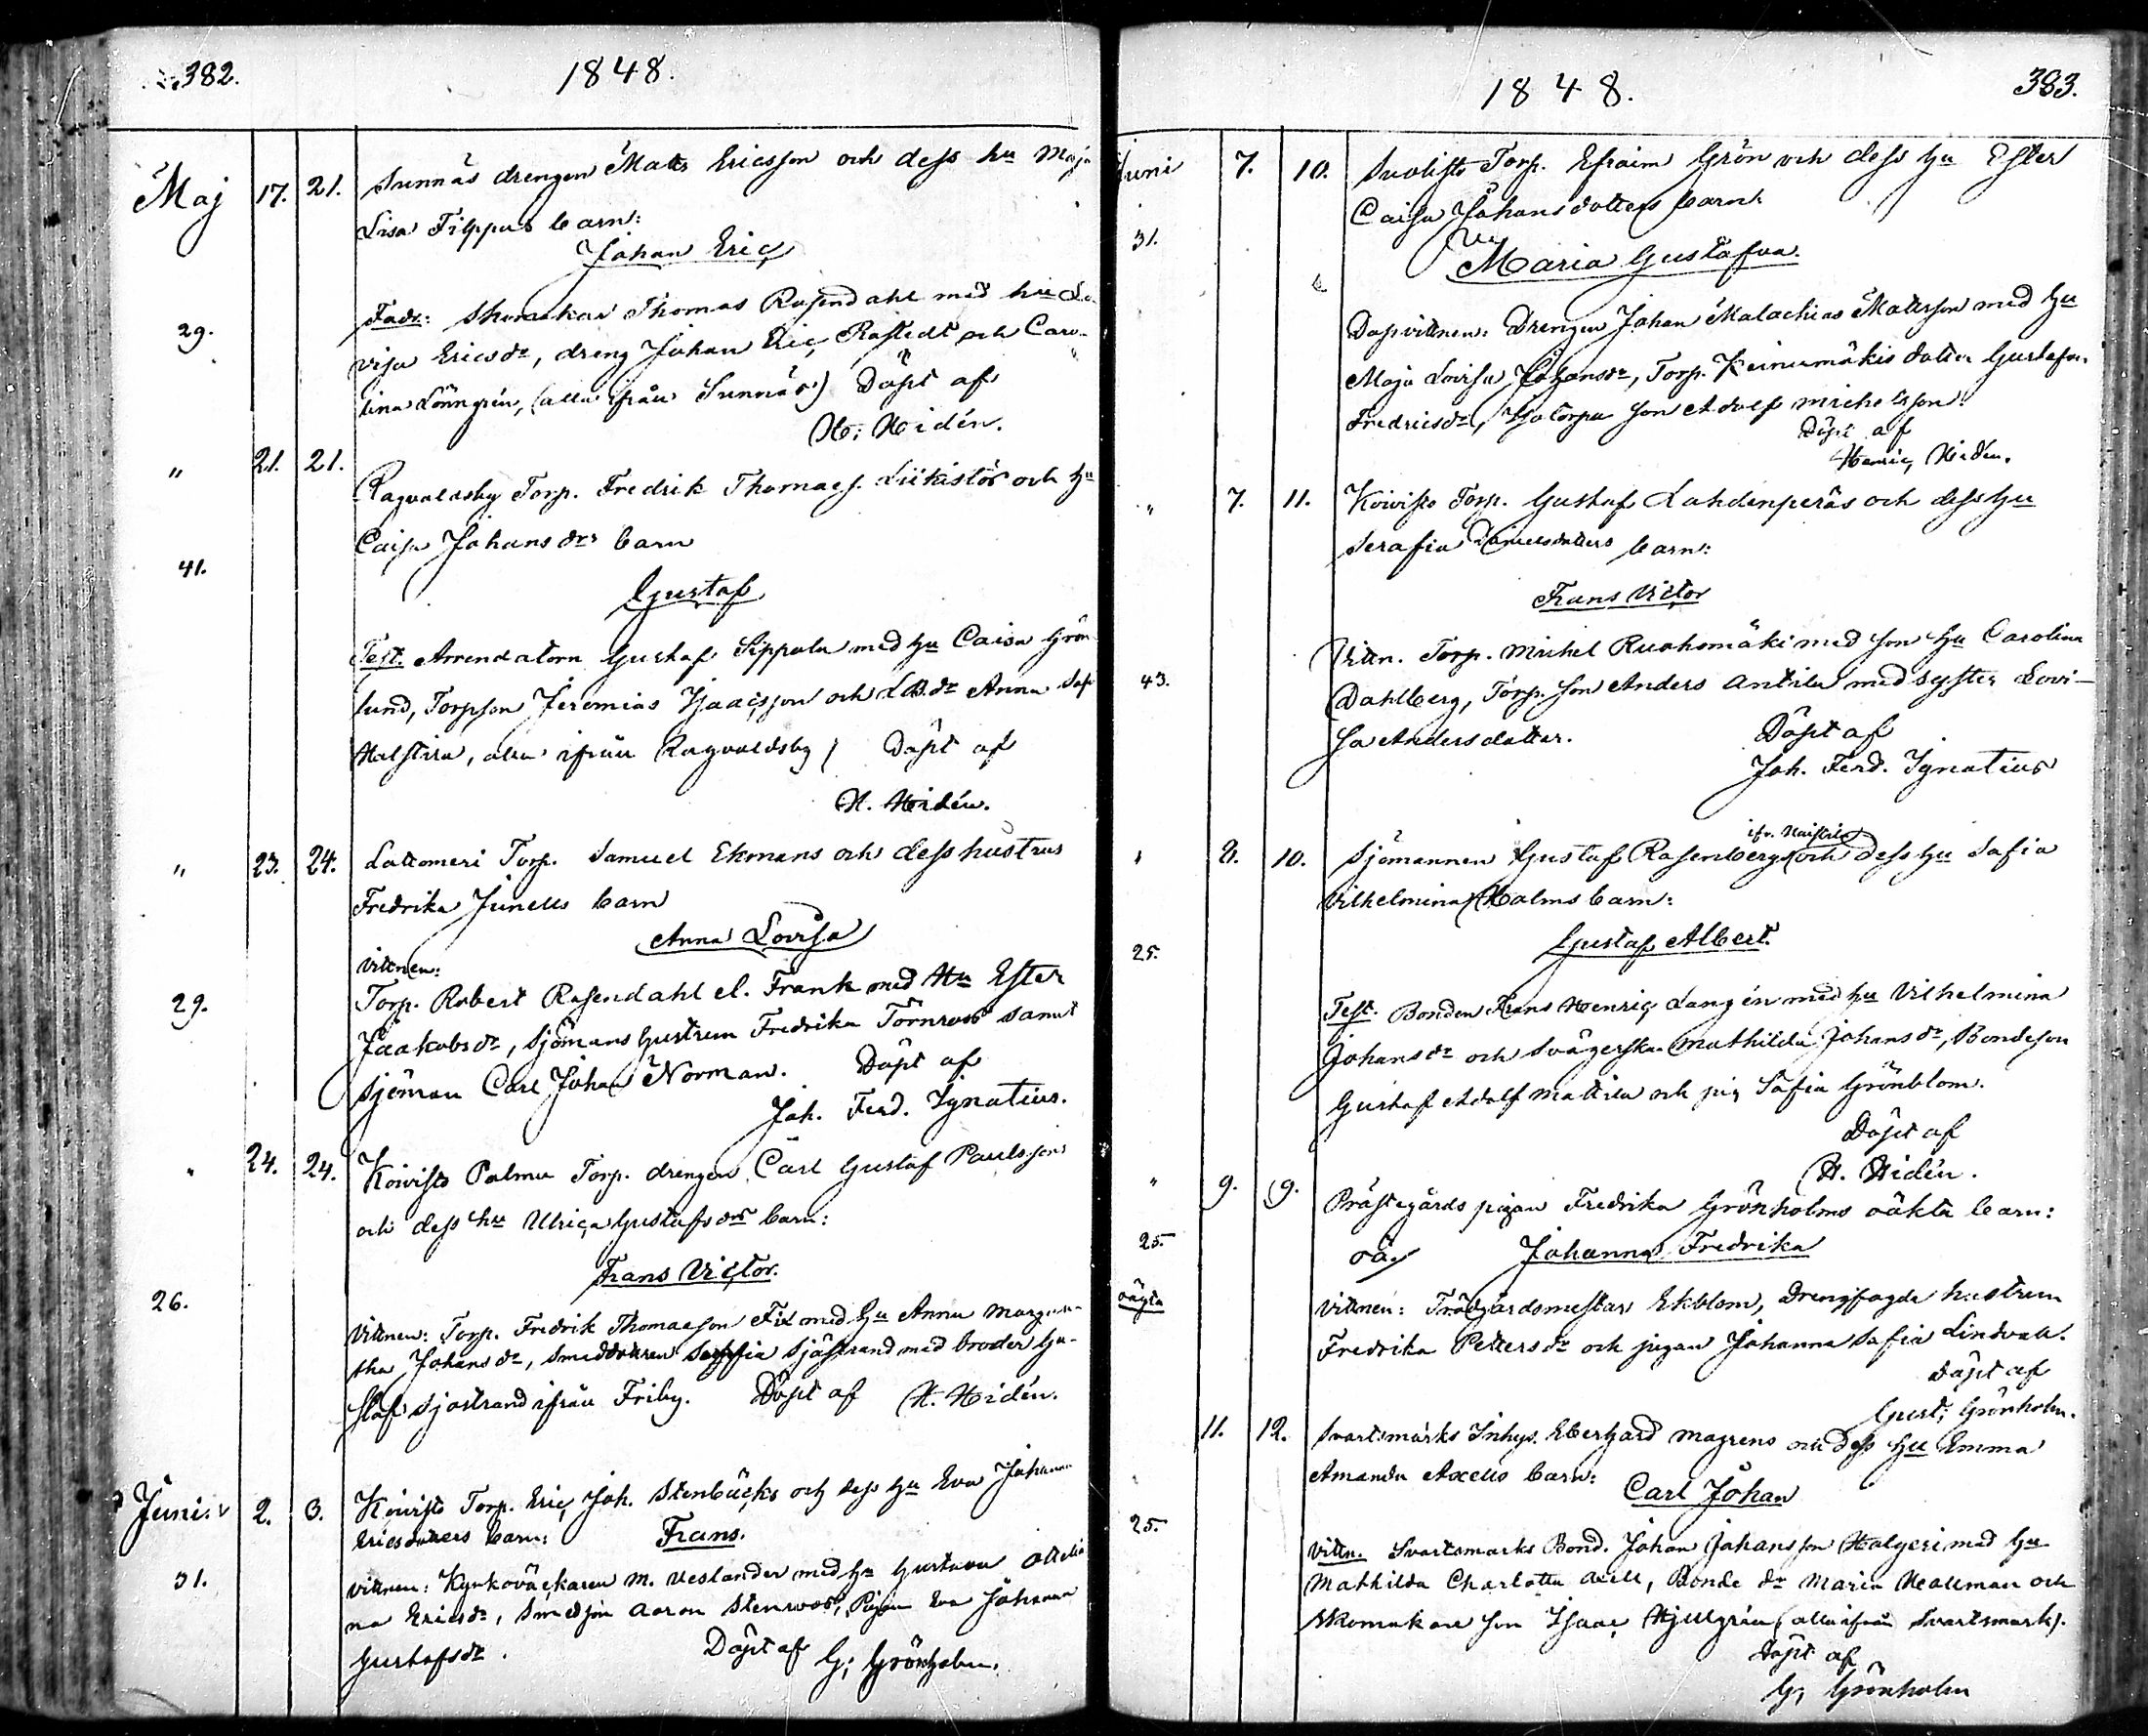 382.
1848.
Maj 17. 21. Sunnäs drengen Matts Ericsson och dess hu Maja
Lisa Filppus barn:
Johan Eric
29. Fadr: Skomakar Thomas Rosendahl med hu Lo
visa Ericsdr, dreng Johan Eric Rostedt och Caro
lina Lönngrén, (alla ifrån Sunnäs) Döpt af
H. Hidén.
" 21. 21. Ragvaldsby Torp. Fredrik Thomaes. Liikistös och hu
Caisa Johansdrs barn
41. Gustaf
Test. Arrendatorn Gustaf Sippola med hu Caisa Grön
lund, Torpson Jeremias Isaacsson och LB.dr Anna Sof
Halstira, alla ifrån Ragvaldsby) Döpt af
H. Hidén.
" 23. 24. Lattomeri Torp. Samuel Ekmans och dess hustrus
Fredrika Junells barn
Anna Lovisa
Vittnen:
29. Torp. Robert Rosendahl el. Frank med Hu Ester
Jaakobsdr, Sjömans hustrun Fredrika Törnroos samt
Sjöman Carl Johan Norman. Döpt af
Joh. Ferd. Ignatius.
" 24. 24. Koivisto Palmu Torp. drengen Carl Gustaf Paulsson
och dess hu Ulrica Gustafsdrs barn:
Frans Victor.
26. Vittnen: Torp. Fredrik Thomasson Fix med hu Anna Marga
tha Johansdr, Smeddottren Sofia Sjöstrand med broder Gu-
staf Sjöstrand ifrån Friby. Döpt af H. Hidén.
Juni. 2. 3. Koivisto Torp. Eric Joh. Stenbäcks och dess hu Eva Johanna
Ericsdotters barn: Frans.
31. Vittnen: Kyrkoväcktaren M. Veslander med hu Gustava Ottilia
na Ericsdr, Smedson Aaron Stenroos, Pigan Eva Johanna
Gustafsdr. Döpt af G; Grönholm.
1848.
383.
Juni 7. 10. Suolisto Torp. Efraim Grön och dess hu Ester
Caisa Johansdotters barn:
31. Maria Gustafva.
Dopvittnen: Drengen Johan Malachias Mattsson med hu
Maja Lovisa Johansdr, Torp. Keinumäkis dotter Gustafva
Fredricsdr, Isotorpa son Adolf Michelsson.
Döpt af
Henric Hidén.
" 7. 11. Koivisto Torp. Gustaf Lahdenperäs och dess hu
Serafia Danielsdotters barn:
Frans Victor
Vittn. Torp. Michel Ruohomäki med son hu Carolina
43. Dahlberg, Torp. son Anders Antila med syster Lovi-
sa Andersdotter. Döpt af
Joh. Ferd. Ignatius
ifr. Naistila
" 8. 10. Sjömannen Gustaf Rosenbergs och dess hu Sofia
Vilhelmina Holms barn:
25. Gustaf Albert.
Test. Bonden Frans Henric Langén med hu Vilhelmina
Johansdr och Svägerskan Mathilda Johansdr, Bondeson
Gustaf Adolf Mattila och pig. Sofia Grönblom.
Döpt af
H. Hidén.
" 9. 9. Prästegårds pigan Fredrika Grönholms oäkta barn:
25. oä. Johanna Fredrika
oägta Vittnen: Trädgårdsmestar Ekblom, Drengfogde hustrun
Fredrika Pettersdr och pigan Johanna Sofia Lindvall.
Döpt af
Gust; Grönholm.
11. 12. Svartsmarks Inhys. Eberhard Magrens och dess hu Emma
Amanda Axells barn:
Carl Johan
25. Vittn. Svartsmarks Bond. Johan Johansson Halgeri med hu
Mathilda Charlotta Axell, Bonde dr Maria Hallman och
Skomakare son Isaac Hjulgrén (alla ifrån Svartsmark).
Döpt af
G; Grönholm